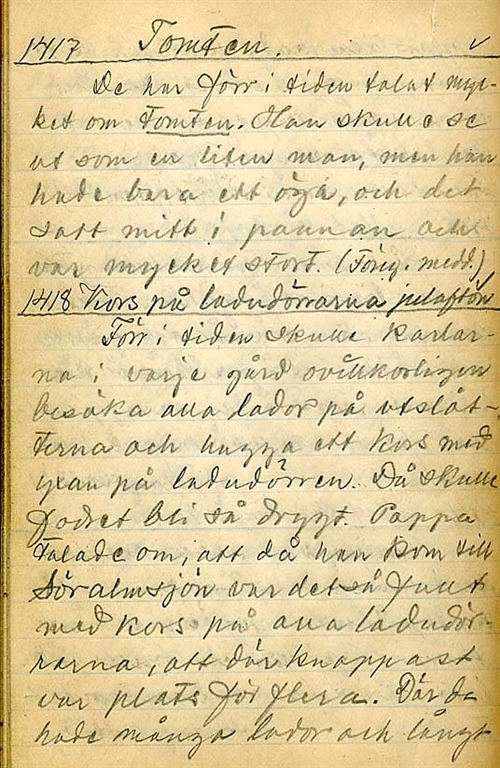 1417 Tomten. v
De har förr i tiden talat myc-
ket om Tomten. Han skulle se
ut som en liten man, men han
hade bara ett öga, och det
satt mitt i pannan och
var mycket stort. (Förig. medd.)
1418 Kors på ladudörrarna julafton
Förr i tiden skulle karlar-
na i varje gård ovillkorligen
besöka alla lador på utslåt-
terna och hugga ett kors med
yxan på ladudörren. Då skulle
fodret bli så drygt. Pappa
talade om, att då han kom till
Söralmsjön var det så fullt
med kors på alla ladudör-
rarna, att där knappast
var plats för flera. Där de
hade många lador och långt